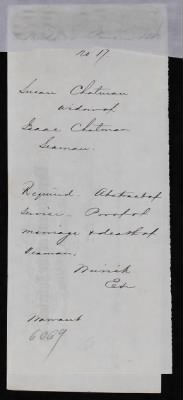 no 17
Susan Chatman
widow of
Isaac Chatman
Seaman.
Required - Abstract of
service - Proof of
marriage & death of
Seaman,
Warrant
6069